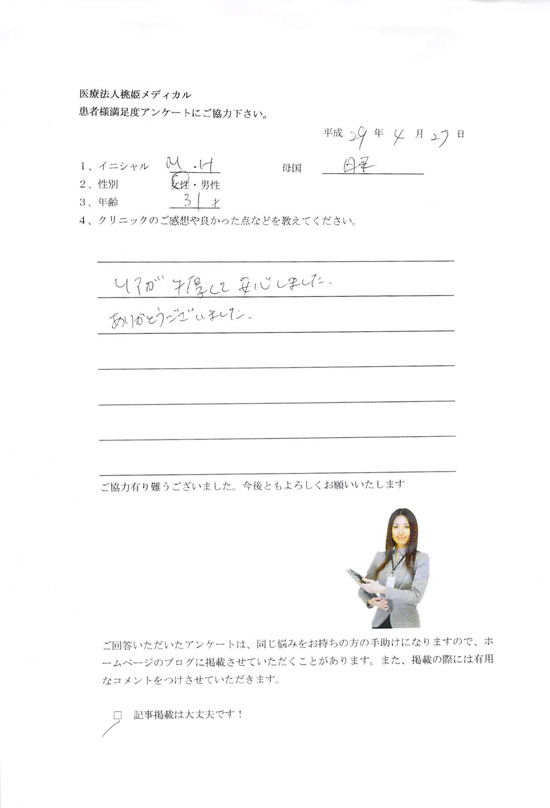 医療法人桃姫メディカル
患者様満足度アンケートにご協力下さい。
平成 29 年 4 月 27 日
1、イニシャル M・H 母国 日本
2、性別 女性・男性
3、年齢 31才
4、クリニックのご感想や良かった点などを教えてください。
が 安心しました。
ありがとうございました。
ご協力有り難うございました。今後ともよろしくお願いいたします
ご回答いただいたアンケートは、同じ悩みをお持ちの方の手助けになりますので、ホ
ームページのブログに掲載させていただくことがあります。また、掲載の際には有用
なコメントをつけさせていただきます。
□ 記事掲載は大丈夫です！